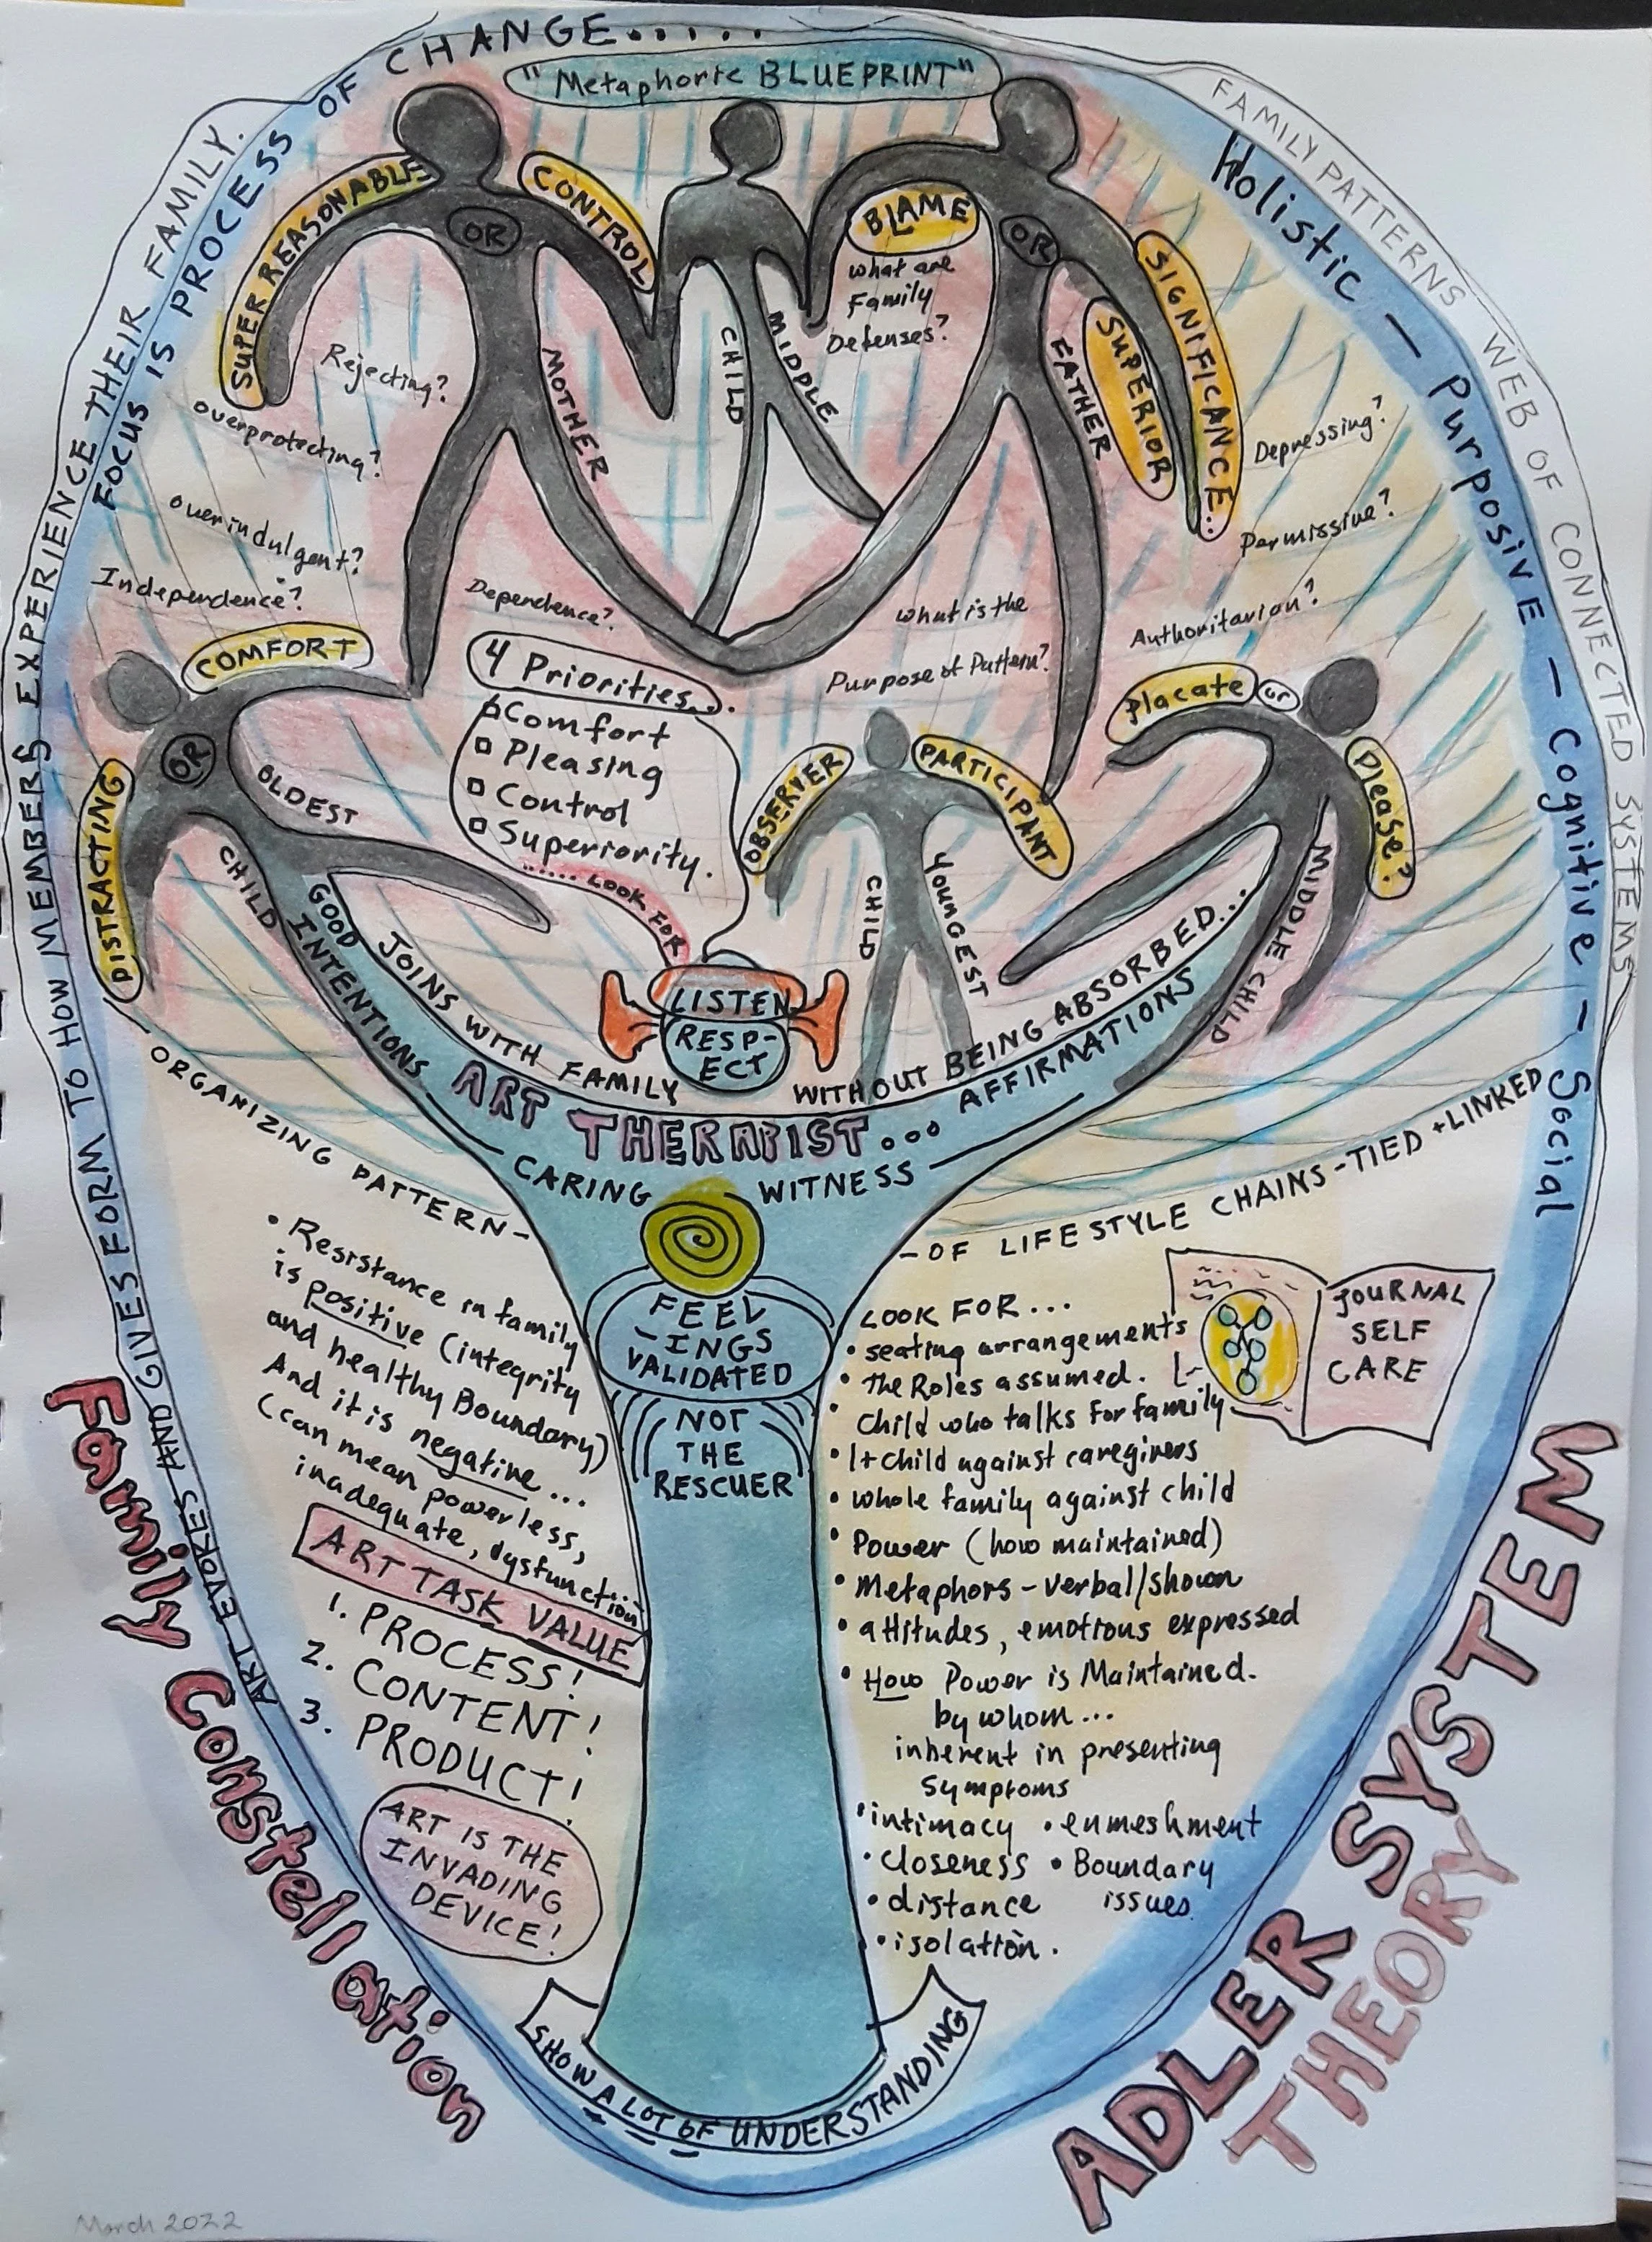 FOCUS IS PROCESS OF CHANGE......
"Metaphoric BLUEPRINT"
FAMILY PATTERNS WEB OF CONNECTED SYSTEMS
Holistic - Purposive - Cognitive - Social
ART EVOKES AND GIVES FORM TO HOW MEMBERS EXPERIENCE THEIR FAMILY.
SUPER REASONABLE
OR
CONTROL
MOTHER
CHILD
MIDDLE
BLAME
OR
SIGNIFICANCE..
SUPERIOR
FATHER
What are
Family
Defenses?
Rejecting?
overprotecting?
overindulgent?
Independence?
Dependence?
Depressing?
Permissive?
Authoritarian?
What is the
Purpose of Pattern?
COMFORT
OR
DISTRACTING
OLDEST
CHILD
4 Priorities...
Comfort
Pleasing
Control
Superiority.
...... LOOK FOR
OBSERVER
PARTICIPANT
CHILD
YOUNGEST
Placate
or
Please?
MIDDLE CHILD
GOOD
INTENTIONS
JOINS WITH FAMILY
WITHOUT BEING ABSORBED...
AFFIRMATIONS
LISTEN
RESP-
ECT
ART THERAPIST...
CARING WITNESS
ORGANIZING PATTERN-
-OF LIFESTYLE CHAINS-TIED + LINKED
FEEL
-INGS
VALIDATED
NOT
THE
RESCUER
• Resistance in family
is positive (integrity
and healthy Boundary)
And it is negative...
(can mean powerless,
inadequate, dysfunction
ART TASK VALUE
1. PROCESS!
2. CONTENT!
3. PRODUCT!
ART IS THE
INVADING
DEVICE!
LOOK FOR...
• seating arrangements
• the Roles assumed.
• Child who talks for family
• 1+child against caregivers
• whole family against child
• Power (how maintained)
• Metaphors - verbal/shown
• attitudes, emotions expressed
• How Power is Maintained.
by whom...
inherent in presenting
symptoms
• intimacy • enmeshment
• closeness • Boundary
issues
• distance
• isolation.
JOURNAL
SELF
CARE
SHOW A LOT OF UNDERSTANDING
Family Constellation
ADLER SYSTEM
THEORY
March 2022